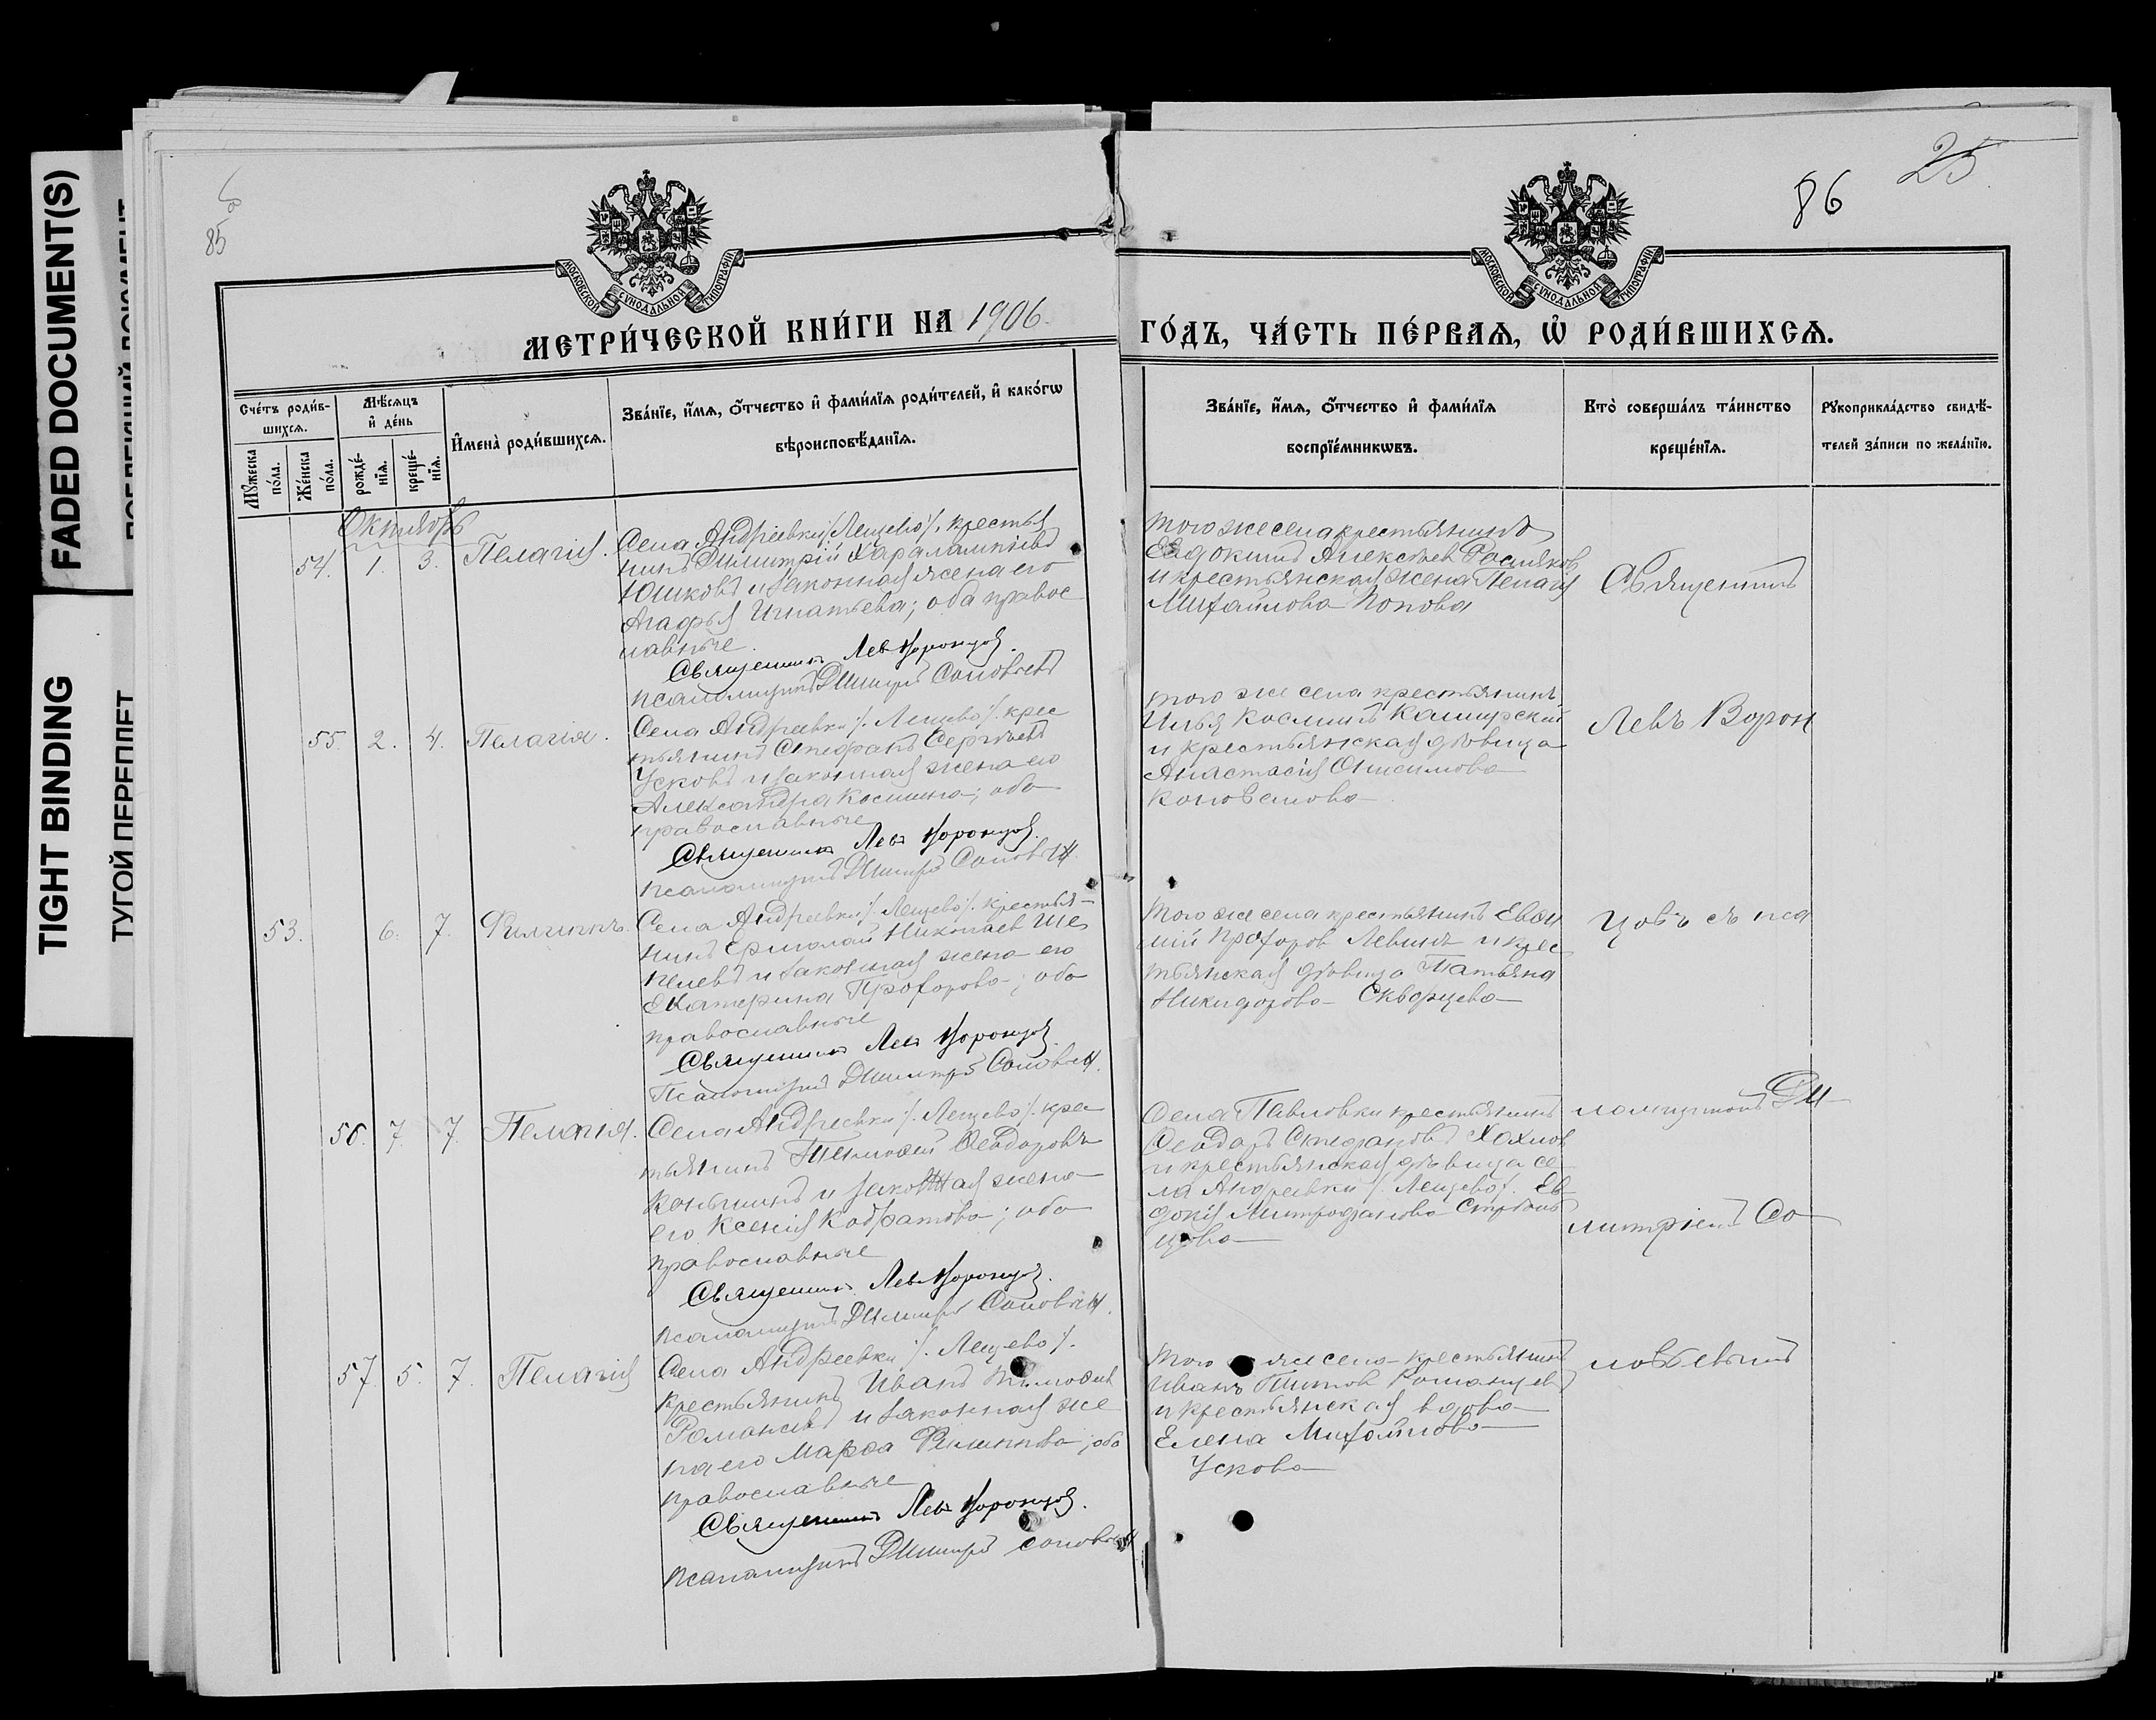 FADED DOCUMENT(S)
TIGHT BINDING
ТУГОЙ ПЕРЕПЛЕТ
85
86
25
МОСКОВСКОЙ СѴНОДАЛЬНОЙ ТИПОГРАФІИ
МОСКОВСКОЙ СѴНОДАЛЬНОЙ ТИПОГРАФІИ
МЕТРИ́ЧЕСКОЙ КНИ́ГИ НА 1906.
ГО́ДЪ, ЧА́СТЬ ПЕ́РВАѦ, Ѡ҆ РОДИ́ВШИХСѦ.
Сче́тъ роди́в-
шихсѧ.
Мꙋ́жеска по́ла.
Же́нска по́ла.
Мѣ́сѧцъ
и҆ де́нь
рожде́-
нїѧ.
креще́-
нїѧ.
И҆мена̀ роди́вшихсѧ.
Зва́нїе, и҆́мѧ, ѻ҆́тчество и҆ фами́лїѧ роди́телей, и҆ како́гѡ
вѣроисповѣ́данїѧ.
Зва́нїе, и҆́мѧ, ѻ҆́тчество и҆ фами́лїѧ
воспрїе́мникѡвъ.
Кто̀ соверша́лъ та́инство
креще́нїѧ.
Рꙋкоприкла́дство свидѣ́-
телей за́писи по жела́нїю.
Октябрь
54. 1. 3. Пелагія.
Села Андреевки /. Лещево /. крестья
нинъ Димитрій Харалампіевъ
Юшковъ и законная жена его
Агафья Игнатьева; оба правос
лавные.
Священникъ Левъ Воронцовъ.
Псаломщикъ Димитрій Соловьевъ
того же села крестьянинъ
Евдокимъ Алексѣев Росляков
и крестьянская жена Пелагія
Михайлова Попова
Священникъ
55. 2. 4. Пелагія.
Села Андреевки /. Лещево /. крес
тьянинъ Стефанъ Сергѣевъ
Усковъ и законная жена его
Александра Космина; оба
православные
Священникъ Левъ Воронцовъ.
Псаломщикъ Димитрій Соловьевъ.
того же села крестьянинъ
Илья Космин Каширский
и крестьянская дѣвица
Анастасія Онисимова
Коновалова
Левъ Ворон
53. 6. 7. Филиппъ.
Села Андреевки /. Лещево /. крестья-
нинъ Ермолай Николаев Ше
пелевъ и законная жена его
Екатерина Прохорова; оба
православные
Священникъ Левъ Воронцовъ.
Псаломщикъ Димитрій Соловьевъ.
Того же села крестьянинъ Евѳи
мій Прохоров Левинъ и крес
тьянская дѣвица Татьяна
Никифорова Скворцева
цовъ съ пса
56. 7. 7. Пелагія.
Села Андреевки /. Лещево /. крес
тьянинъ Тимоѳей Ѳеодоровъ
Коньшинъ и законная жена
его Ксенія Кодратова; оба
православные
Священникъ Левъ Воронцовъ.
Псаломщикъ Димитрій Соловьевъ.
Села Павловки крестьянинъ
Ѳеодоръ Стефановъ Хохлов
и крестьянская дѣвица се
ла Андреевки /. Лещево /. Ев
докія Митрофанова
цова
ломщикомъ Ди
митріемъ Со
57. 5. 7. Пелагія
Села Андреевки /. Лещево /.
крестьянинъ Иванъ Тимоѳеев
и законная же
на его Марѳа Филиппова; оба
православные
Священникъ Левъ Воронцовъ.
Псаломщикъ Димитрій Соловьевъ
Того же села крестьянинъ
Иванъ Титов Романцев
и крестьянская вдова
Елена Михайлова
Ускова
ловьевымъ